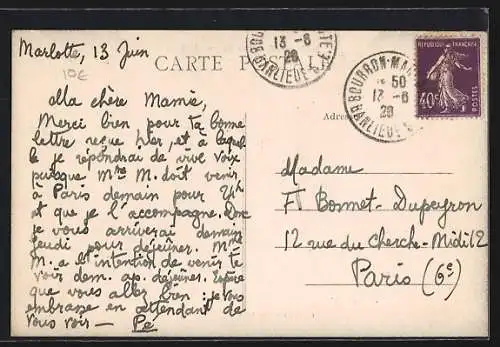 Marlotte, 13 Juin
10€
CARTE POSTALE
Ma chère Mamie,
Merci bien pour ta bonne
lettre reçue hier, et à laquelle
je répondrai de vive voix
puisque Mme M. doit venir
à Paris demain pour 24h
et que je l'accompagne. Donc
je vous arriverai demain
jeudi pour déjeuner. Mme
M. a l'intention de venir te
voir dem. ap. déjeuner. Espère
que vous allez bien : je vous
embrasse en attendant de
vous voir —
13 - 6
28
BOURRON-MA
50
13 - 6
28
REPUBLIQUE FRANÇAISE
40c
POSTES
Adre
Madame
Bonnet-Dupeyron
12 rue du Cherche-Midi 12
Paris (6e)